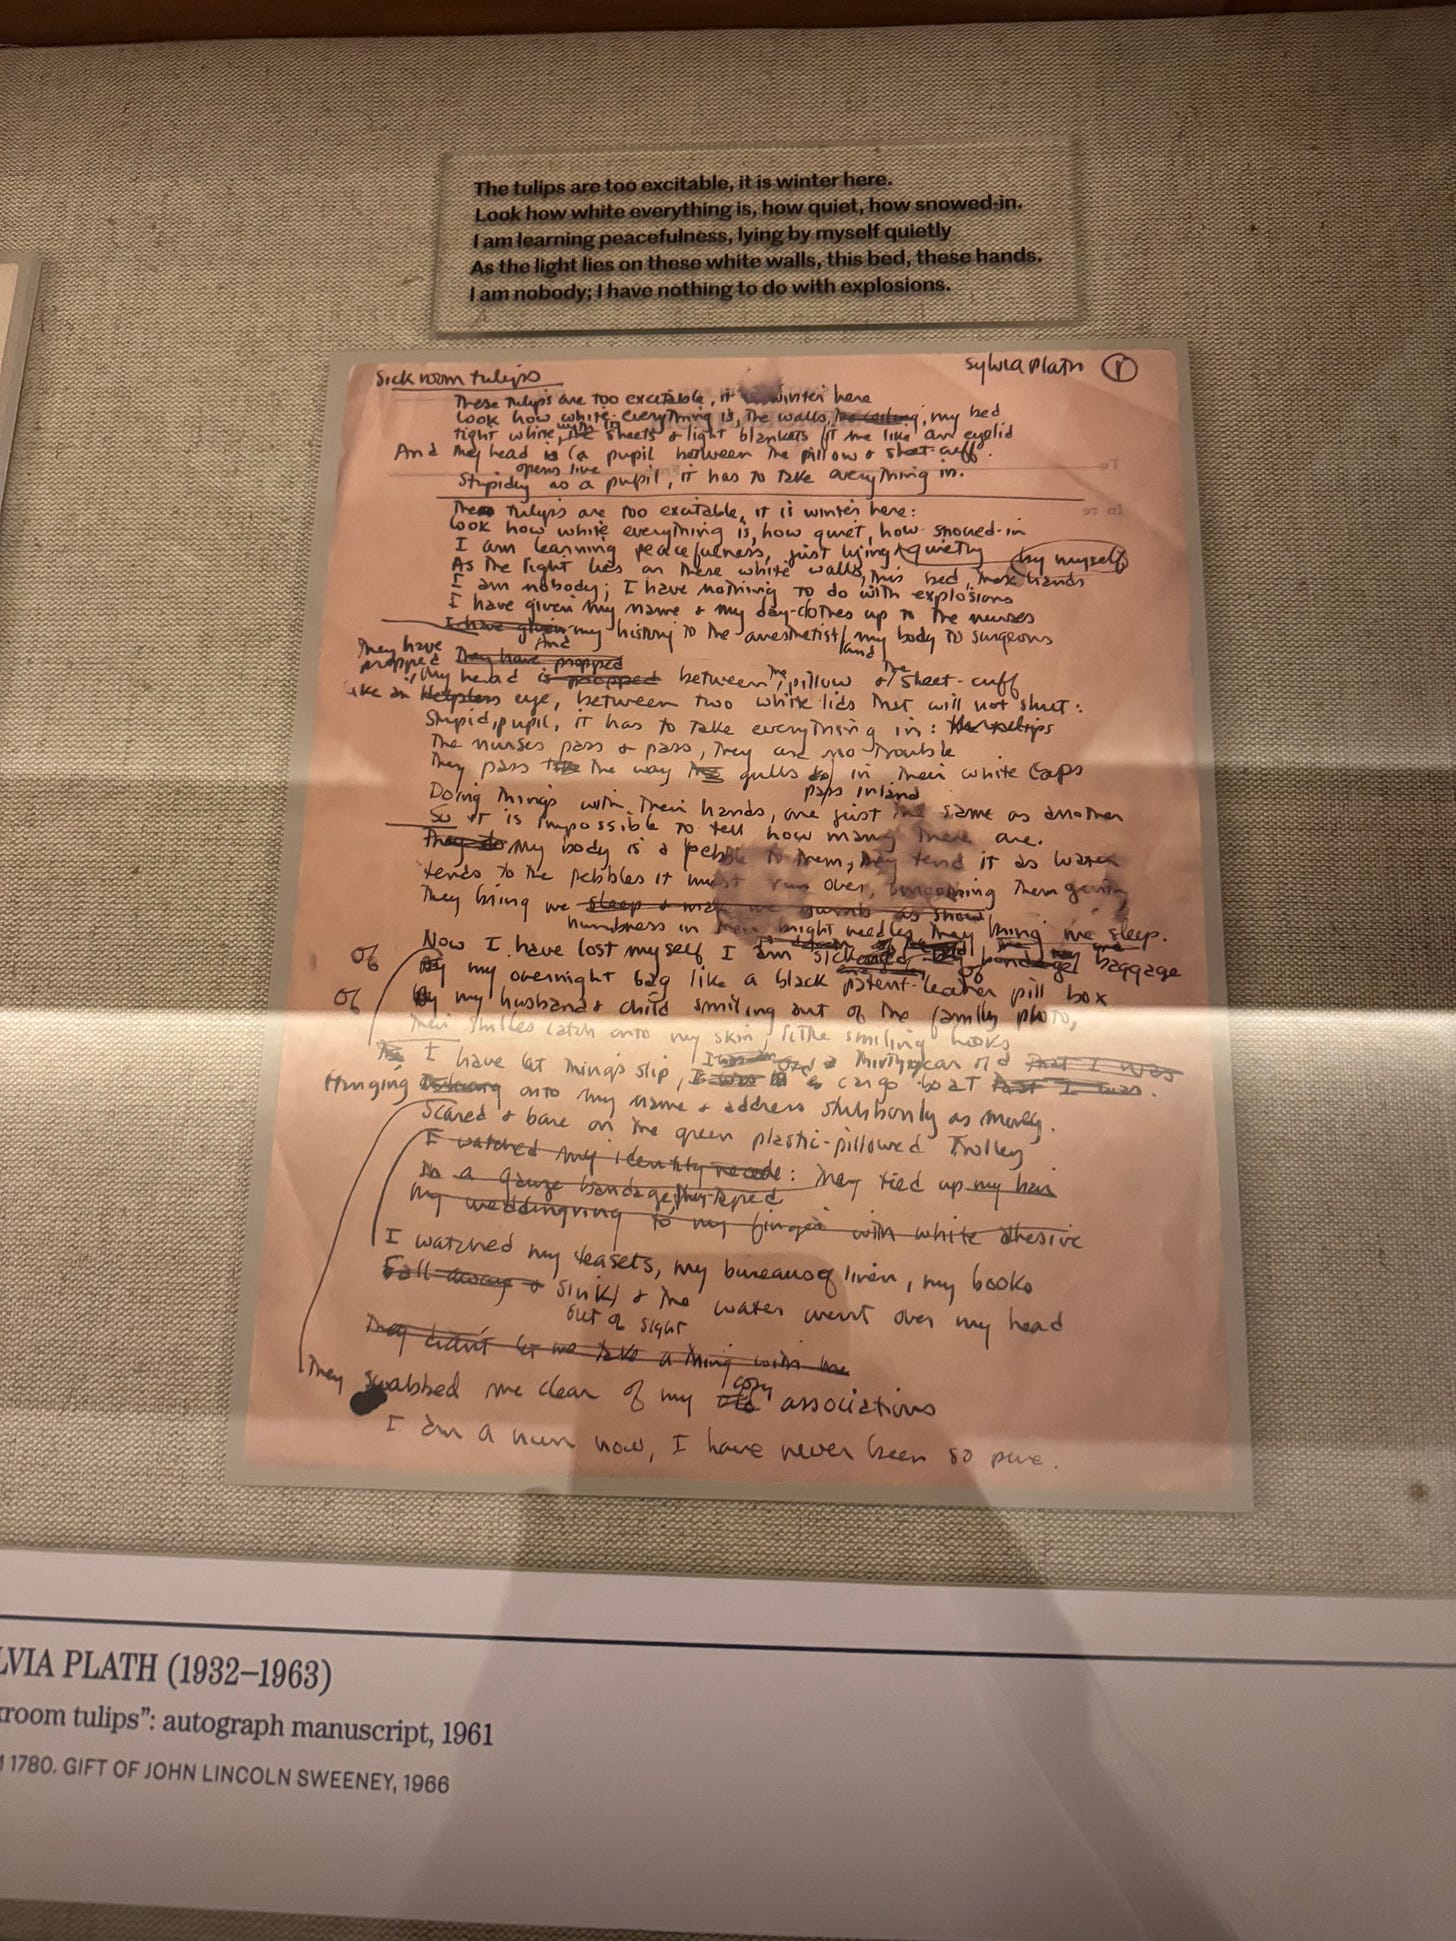 The tulips are too excitable, it is winter here.
Look how white everything is, how quiet, how snowed-in.
I am learning peacefulness, lying by myself quietly
As the light lies on these white walls, this bed, these hands.
I am nobody; I have nothing to do with explosions.
Sick room tulips
Sylvia Plath 1
These tulips are too excitable, it winter here
Look how white everything is, the walls, the ceiling, my bed
tight white, with in the sheets & light blankets fit me like an eyelid
And my head is (a pupil between the pillow & sheet-cuff.
opens live
Stupidly as a pupil, it has to take everything in.
To
In re
The tulips are too excitable, it is winter here:
Look how white everything is, how quiet, how snowed-in
I am learning peacefulness, just lying quietly by myself
As the light lies on these white walls, this bed, these hands
I am nobody; I have nothing to do with explosions
I have given my name & my day-clothes up to the nurses
I have given my history to the anesthetist / my body to surgeons
And and
They have propped They have propped
my head is propped between the pillow & the sheet-cuff
like an helpless eye, between two white lids that will not shut:
Stupid pupil, it has to take everything in: the tulips
The nurses pass & pass, they are no trouble
They pass the the way the gulls in their white caps
pass inland
Doing things with their hands, one just the same as another
So it is impossible to tell how many there are.
They do My body is a pebble to them, they tend it as water
tends to the pebbles it must run over, smoothing them gently
They bring me sleep & make me numb as snow
numbness in their bright needles, they bring me sleep.
Now I have lost myself I am sick of baggage
Of my overnight bag like a black patent-leather pill box
Of my husband & child smiling out of the family photo,
Their smiles catch onto my skin, little smiling hooks
I have let things slip, I was a thirty year old that I was
I was cargo boat that I was.
Hanging onto my name & address stubbornly as
Scared & bare on the green plastic-pillowed trolley
I watched my identity recede: they tied up my hair
In a gauze bandage, they taped
My wedding ring to my finger with white adhesive
I watched my teasets, my bureaus of linen, my books
Fall away & sink & the water went over my head
out of sight
They didn't let me take a thing with me
They swabbed me clear of my old cozy associations
I am a nun now, I have never been so pure.
LVIA PLATH (1932–1963)
room tulips": autograph manuscript, 1961
1780. GIFT OF JOHN LINCOLN SWEENEY, 1966